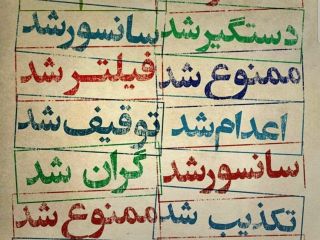 دستگیر شد سانسور شد
ممنوع شد فیلتر شد
اعدام شد توقیف شد
سانسور شد گران شد
تکذیب شد ممنوع شد